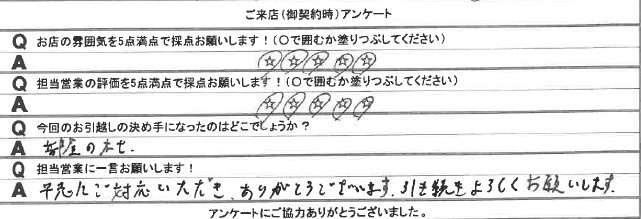 ご来店（御契約時）アンケート
Q お店の雰囲気を5点満点で採点お願いします！（〇で囲むか塗りつぶしてください）
A ☆☆☆☆☆
Q 担当営業の評価を5点満点で採点お願いします！（〇で囲むか塗りつぶしてください）
A ☆☆☆☆☆
Q 今回のお引越しの決め手になったのはどこでしょうか？
A 部屋の
Q 担当営業に一言お願いします！
A 早急にご対応いただき、ありがとうございます。引き続きよろしくお願いします。
アンケートにご協力ありがとうございました。